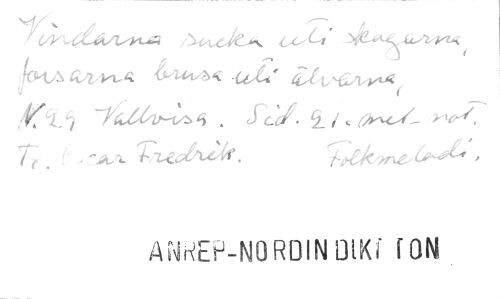 Vindarna sucka uti skogarna,
forsarna brusa uti älvarna,
N. 29 Vallvisa. Sid. 21. mel-not.
Fr. Oscar Fredrik. Folkmelodi.
ANREP-NORDIN DIKT TON